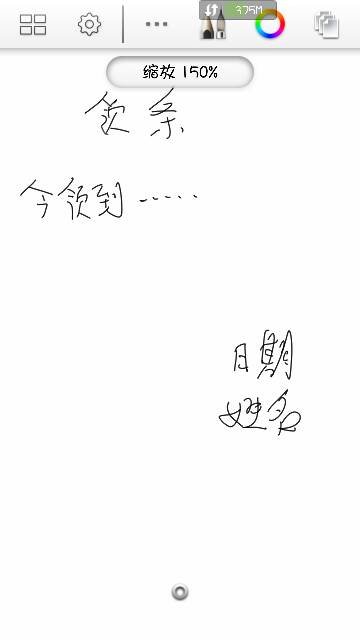 375M
缩放 150%
领条
今领到……
日期
姓名